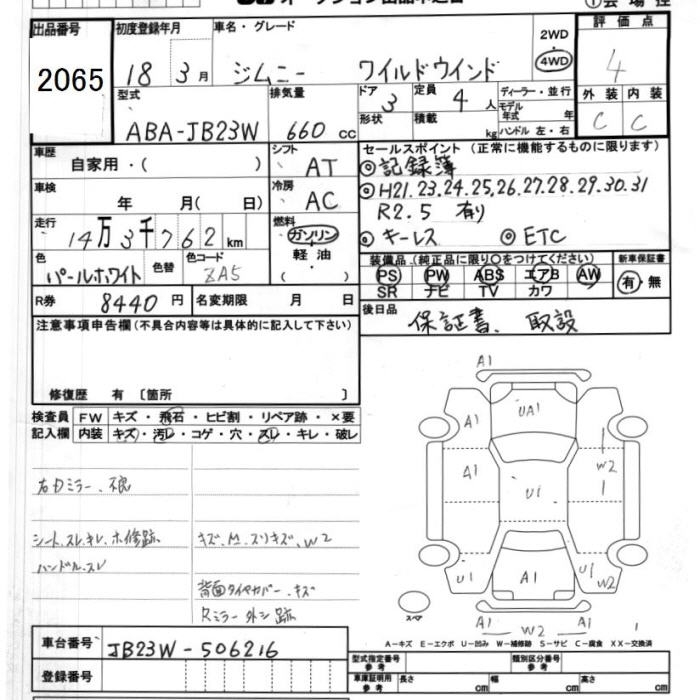 オークション出品申込書
①会場控
出品番号
2065
初度登録年月
18 3月
車名・グレード
ジムニー ワイルドウインド
2WD
4WD
評価点
4
型式
ABA-JB23W
排気量
660 cc
ドア
3
定員
4 人
ディーラー・並行
モデル年式 年
形状
積載 kg
ハンドル 左・右
外装 内装
C C
車歴
自家用・( )
シフト
AT
セールスポイント (正常に機能するものに限ります)
◎記録簿
◎H21.23.24.25.26.27.28.29.30.31
R2.5 有り
◎キーレス ◎ETC
車検
年 月( 日)
冷房
AC
走行
14万3千762km
燃料
ガソリン
軽油
( )
色
パールホワイト
色替
色コード
ZA5
装備品 (純正品に限り○をつけてください)
PS PW ABS エアB AW
SR ナビ TV カワ
新車保証書
有・無
R券
8440円
名変期限 月 日
後日品
保証書、取説
注意事項申告欄(不具合内容等は具体的に記入して下さい)
修復歴 有 〔箇所 〕
検査員記入欄
FW キズ・飛石・ヒビ割・リペア跡・×要
内装 キズ・汚レ・コゲ・穴・スレ・キレ・破レ
右Dミラー、不良
シート、スレ、キレ、ホ修跡
ハンドル、スレ
キズ、M、スリキズ、W2
背面タイヤカバー、キズ
Rミラー外シ跡
A1
A1
UA1
A1
U1
W2
1
U1
A1
U1
W2
スペア
A1
W2
A1
1
A-キズ E-エクボ U-凹み W-補修跡 S-サビ C-腐食 XX-交換済
車台番号
JB23W-506216
登録番号
型式指定番号 参考
類別区分番号 参考
車庫証明用 参考
長さ cm
幅 cm
高さ cm